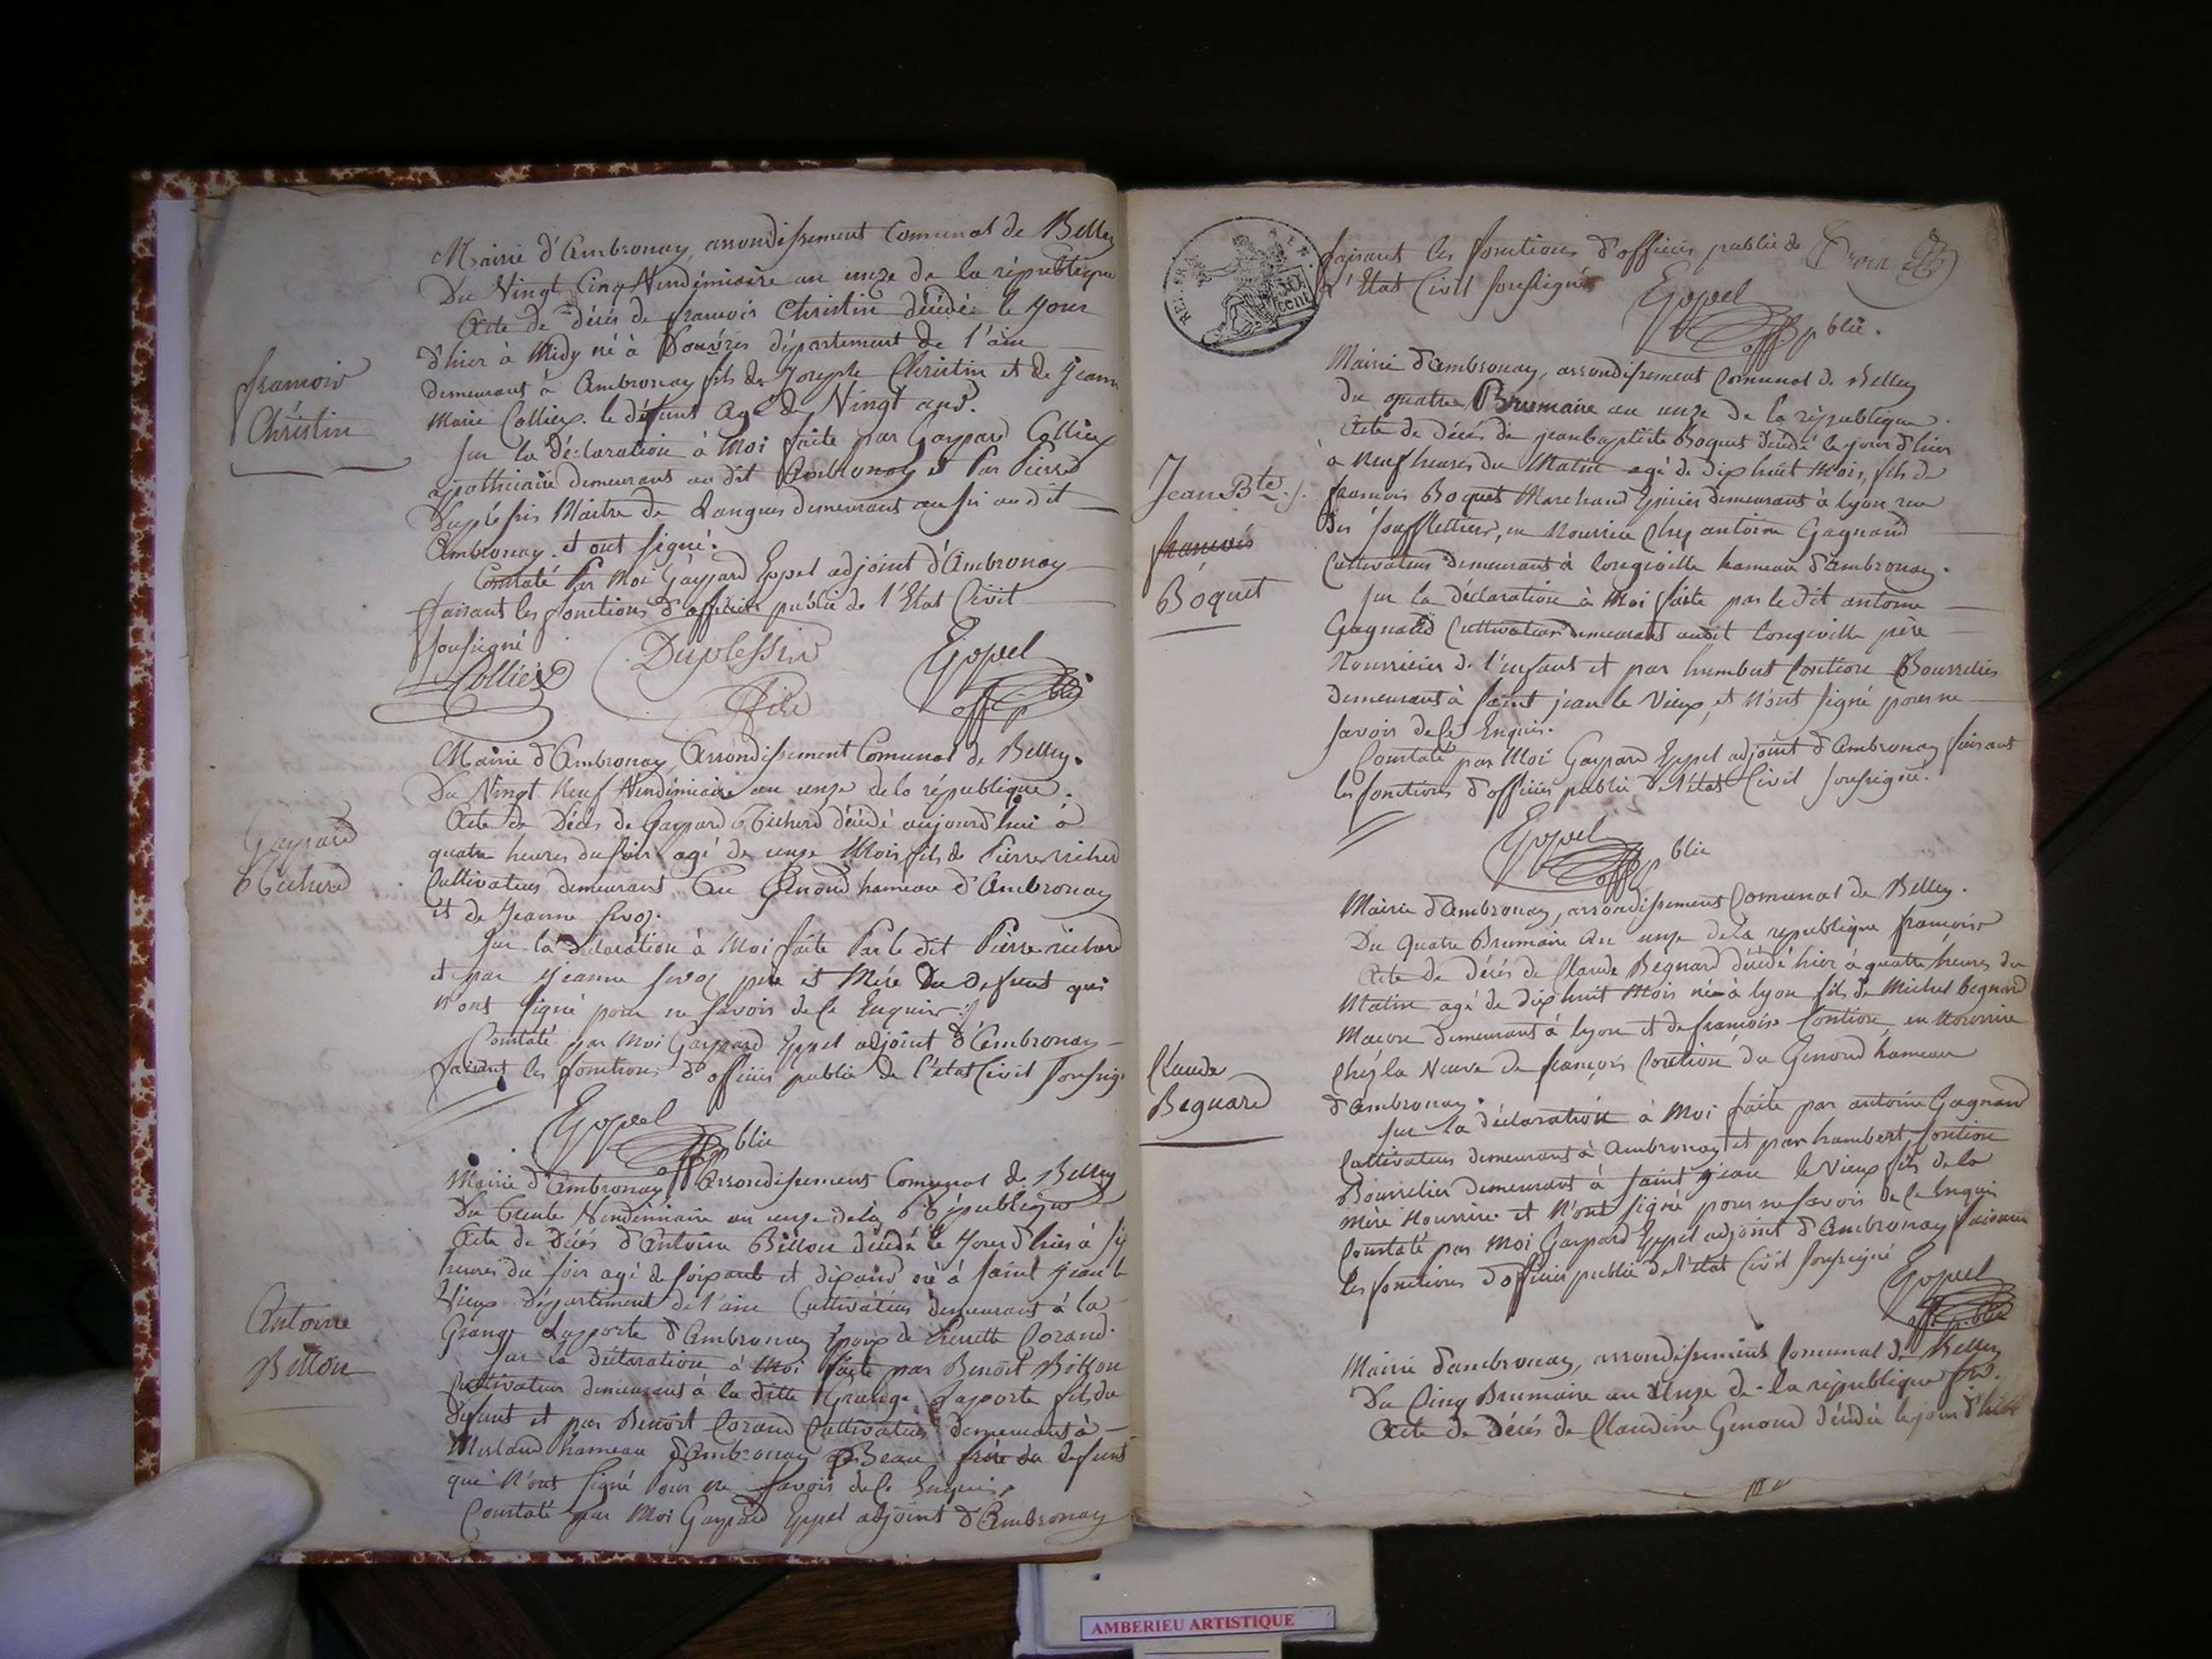 Mairie d'Ambronay, arrondissement Comunal de Belley
Du Vingt Cinq Vendémiaire an unze de la république
Acte de décés de francois Christin décédé le jour
d'hier à Midy né à Douvres département de l'ain
francois
Christin
demeurant à Ambronay fils de Joseph Christin et de Jeanne
Marie Colliex. le défunt agé de Vingt ans.
Sur la déclaration à Moi faite par Gaspard Colliex
apothicaire demeurant au dit Ambronay et Par Pierre
Duplessis Maitre de Langues demeurant aussi au dit
Ambronay. et ont signé.
Constaté Par Moi Gaspard Eppel adjoint d'Ambronay
faisant les fonctions d'officier public de l'Etat Civil
soussigné
Colliex Duplessis Eppel
off p blic
Mairie d'Ambronay, Arrondissement Comunal de Belley.
Du Vingt Neuf Vendémiaire an unze de la république.
Acte de Décés de Gaspard Richerd décédé aujourd'hui à
Gaspard
Richerd
quatre heures du soir agé de unze Mois fils de Pierre richerd
Cultivateur demeurant Au Genoud hameau d'Ambronay
et de Jeanne
Sur la déclaration à Moi faite Par le dit Pierre richerd
et par Jeanne père et Mére du defunt qui
n'ont signé pour ne savoir de ce Enquis
Constaté par Moi Gaspard Eppel adjoint d'Ambronay
faisant les fonctions d'officier public de l'état Civil soussig
Eppel
off p blic
Mairie d'Ambronay, Arrondissement Comunal de Belley
Du trente Vendémiaire an unze de la République
Acte de Décés d'Antoine Billon décédé le jour d'hier à six
heures du soir agé de soixante et dix ans né à saint jean le
Vieux département de l'ain Cultivateur demeurant à la
Antoine
Billon
Grange Laporte d'Ambronay Epoux de Corand.
Sur la déclaration à Moi faite par Benoit Billon
Cultivateur demeurant à la ditte Grange Laporte fils du
defunt et par Benoit Corand Cultivateur demeurant à
Merland hameau d'Ambronay Beau frére du defunt
qui N'ont signé Pour ne savoir de ce Enquis.
Constaté par Moi Gaspard Eppel adjoint d'Ambronay
faisant les fonctions d'officier public de
l'Etat Civil soussigné
Eppel
off p blic.
Mairie d'Ambronay, arrondissement Comunal de Belley
du quatre Brumaire an unze de la république.
Acte de décés de jean baptiste Boquet décédé le jour d'hier
à Neuf heures du Matin agé de dix huit Mois, fils de
Jean Bte.
francois
Boquet
francois Boquet Marchand Epicier demeurant à lyon rue
des souffletiers, en Nourrice chez antoine Gagnard
Cultivateur demeurant à Longeville hameau d'ambronay.
Sur la déclaration à Moi faite par le dit antoine
Gagnard Cultivateur demeurant audit Longeville père
Nourricier de l'enfant et par humbert Bourrelier
demeurant à saint jean le Vieux, et N'ont signé pour ne
savoir de ce Enquis.
Constaté par Moi Gaspard Eppel adjoint d'Ambronay faisant
les fonctions d'officier public de l'état Civil soussigné.
Eppel
off p blic
Mairie d'Ambronay, arrondissement Comunal de Belley.
Du Quatre Brumaire An unze de la republique francoise
Acte de décés de Claude Bégnard décédé hier à quatre heures du
Matin agé de dix huit Mois né à lyon fils de Michel Begnard
Macon demeurant à lyon et de francoise en Nourrice
chéz la Veuve de francois du Genoud hameau
Claude
Begnard
d'Ambronay.
Sur la déclaration à Moi faite par antoine Gagnard
Cultivateur demeurant à Ambronay et par humbert
Bourrelier demeurant à saint jean le Vieux fils de la
Mère Nourrice. et N'ont signé pour ne savoir de ce Enquis
Constaté par Moi Gaspard Eppel adjoint d'Ambronay faisant
les fonctions d'officier public de l'état Civil soussigné
Eppel
off p blic
Mairie d'ambronay, arrondissement Comunal de Belley
Du Cinq Brumaire an Unze de la république
Acte de Décés de Claudine Genoud décédée le jour d'hier
AMBERIEU ARTISTIQUE